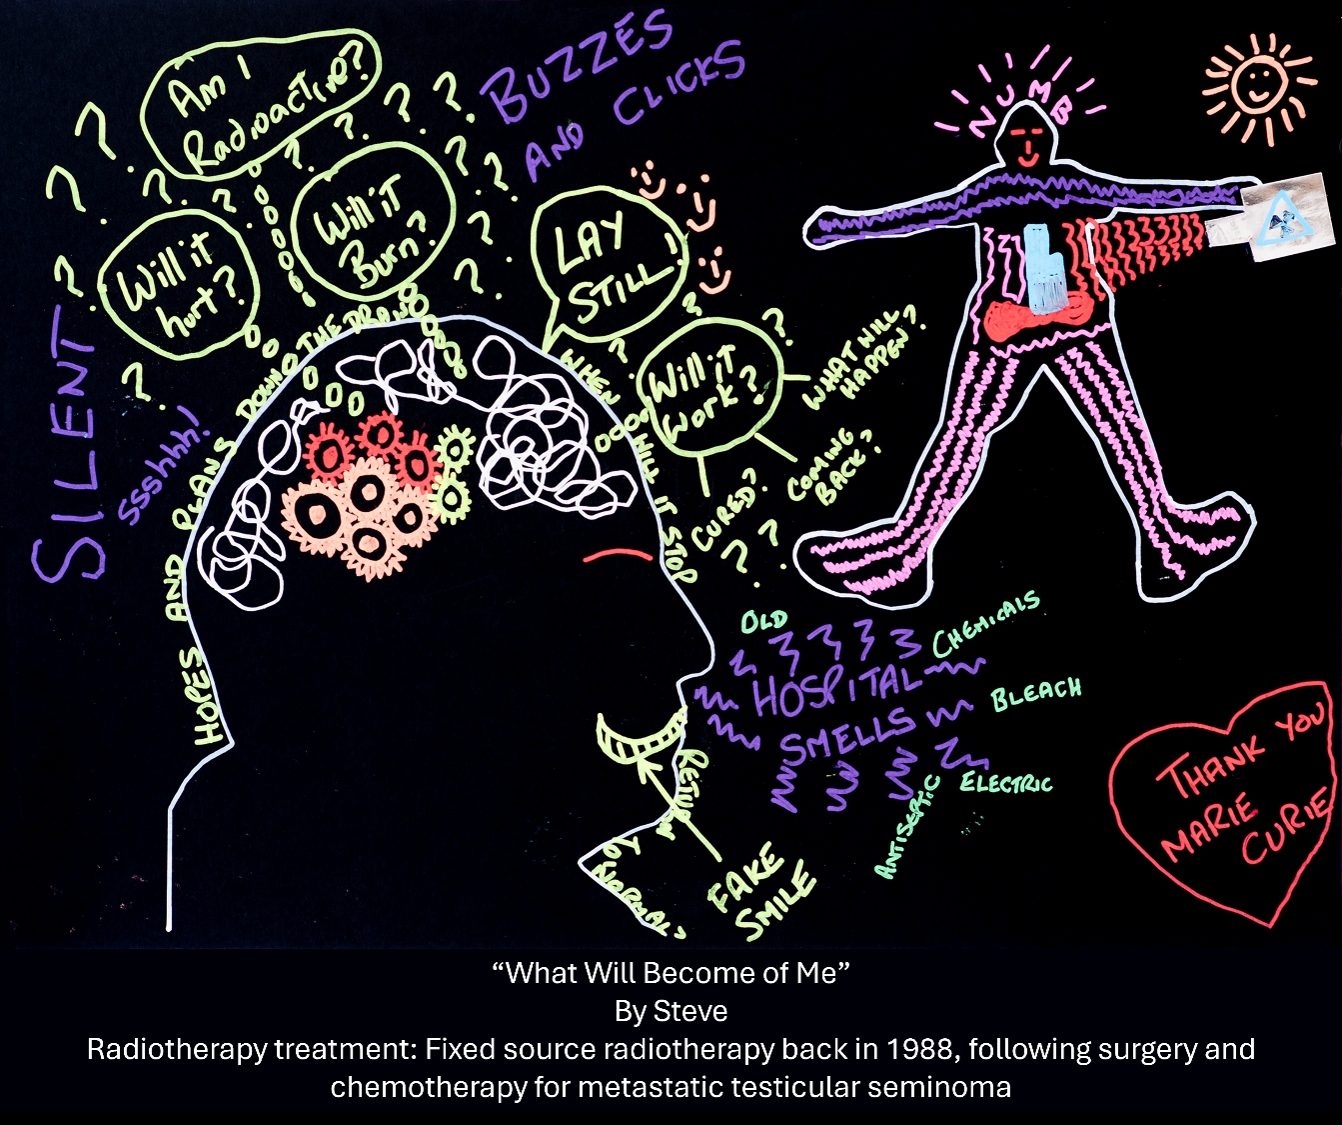 Am I
Radioactive?
BUZZES
AND CLICKS
NUMB
Will it
hurt?
Will it
Burn?
LAY
STILL!
Will it
work?
WHAT WILL
HAPPEN?
COMING
BACK?
CURED?
SILENT
Sssshhh!
HOPES AND PLANS DOWN THE DRAIN
WHEN WILL IT STOP
OLD
CHEMICALS
HOSPITAL
SMELLS
BLEACH
ELECTRIC
ANTISEPTIC
RETURN
TO
NORMAL?
FAKE
SMILE
THANK YOU
MARIE
CURIE
“What Will Become of Me”
By Steve
Radiotherapy treatment: Fixed source radiotherapy back in 1988, following surgery and
chemotherapy for metastatic testicular seminoma